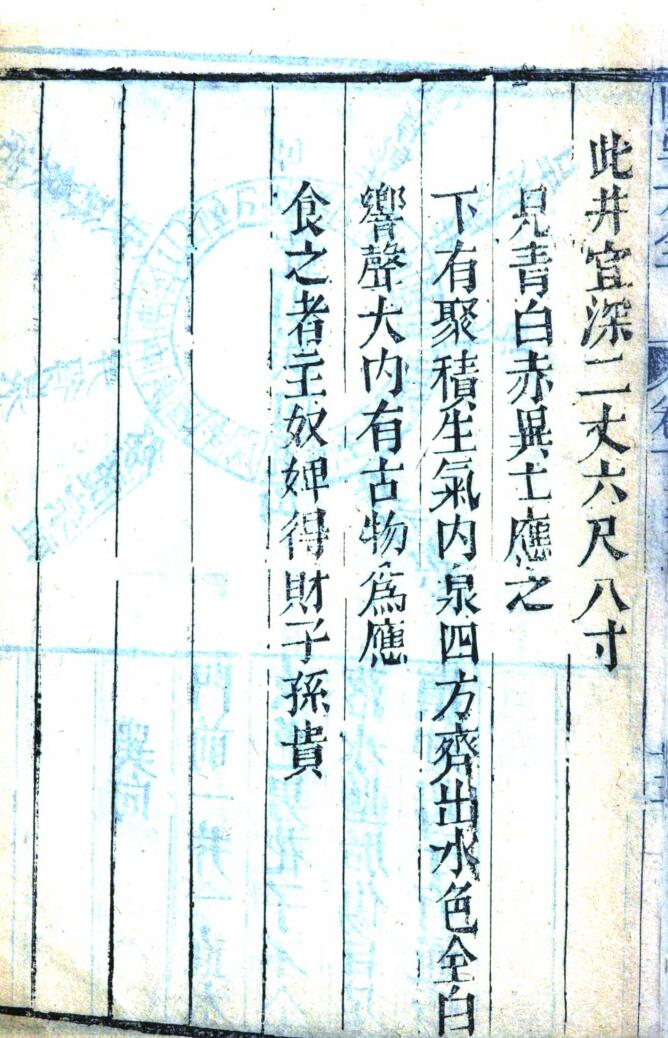 此井宜深二丈六尺八寸
見青白赤異土應之
下有聚積生氣内泉四方齊出水色全白
響聲大内有古物為應
食之者主奴婢得財子孫貴